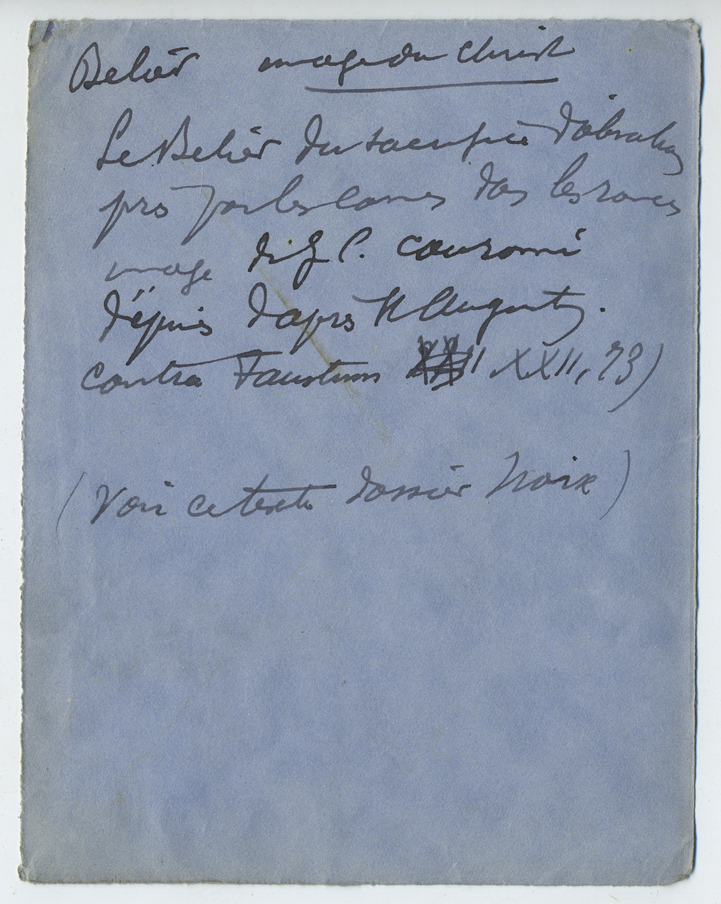 Belier image du Christ
Le Belier du sacrifice d'Abraham
pris par les cornes dans les ronces
image de J C. couronné
d'épines d'après St Augustin.
contra Faustum XXII, 73)
(Voir ce texte dossier Noix)